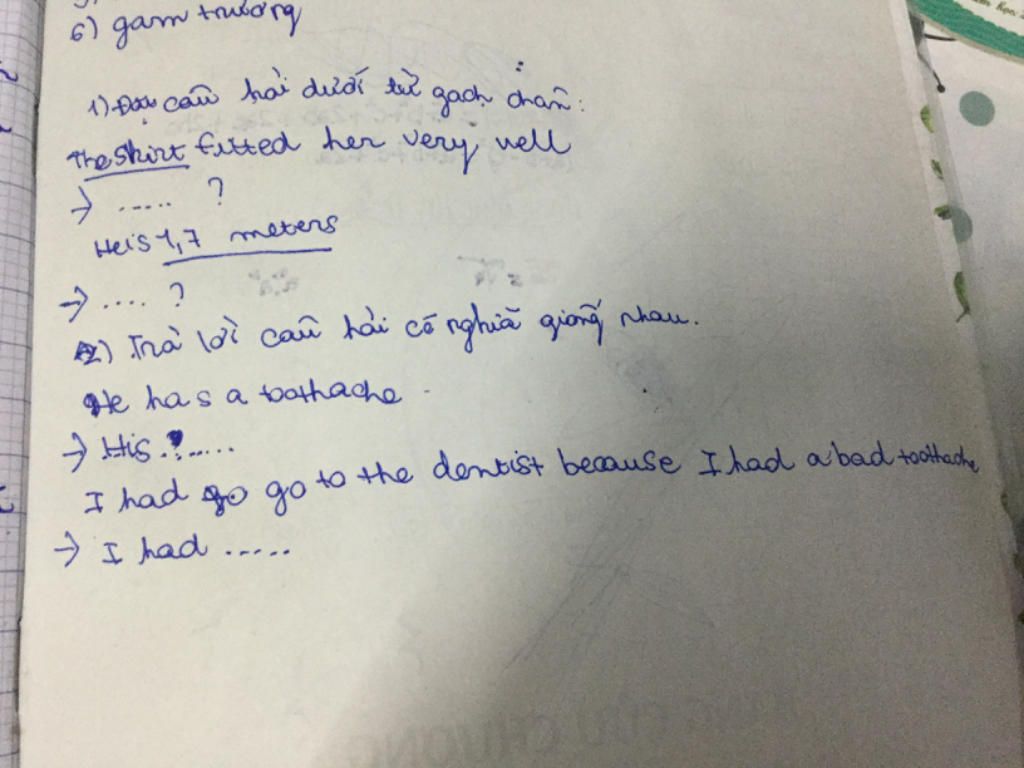 6) gam trường
1) Đặt câu hỏi dưới từ gạch chân:
The Skirt fitted her very well
→ ..... ?
He is 1,7 meters
→ .... ?
2) Trả lời câu hỏi có nghĩa giống nhau.
He has a toothache.
→ His .......
I had go to the dentist because I had a bad toothache
→ I had .....